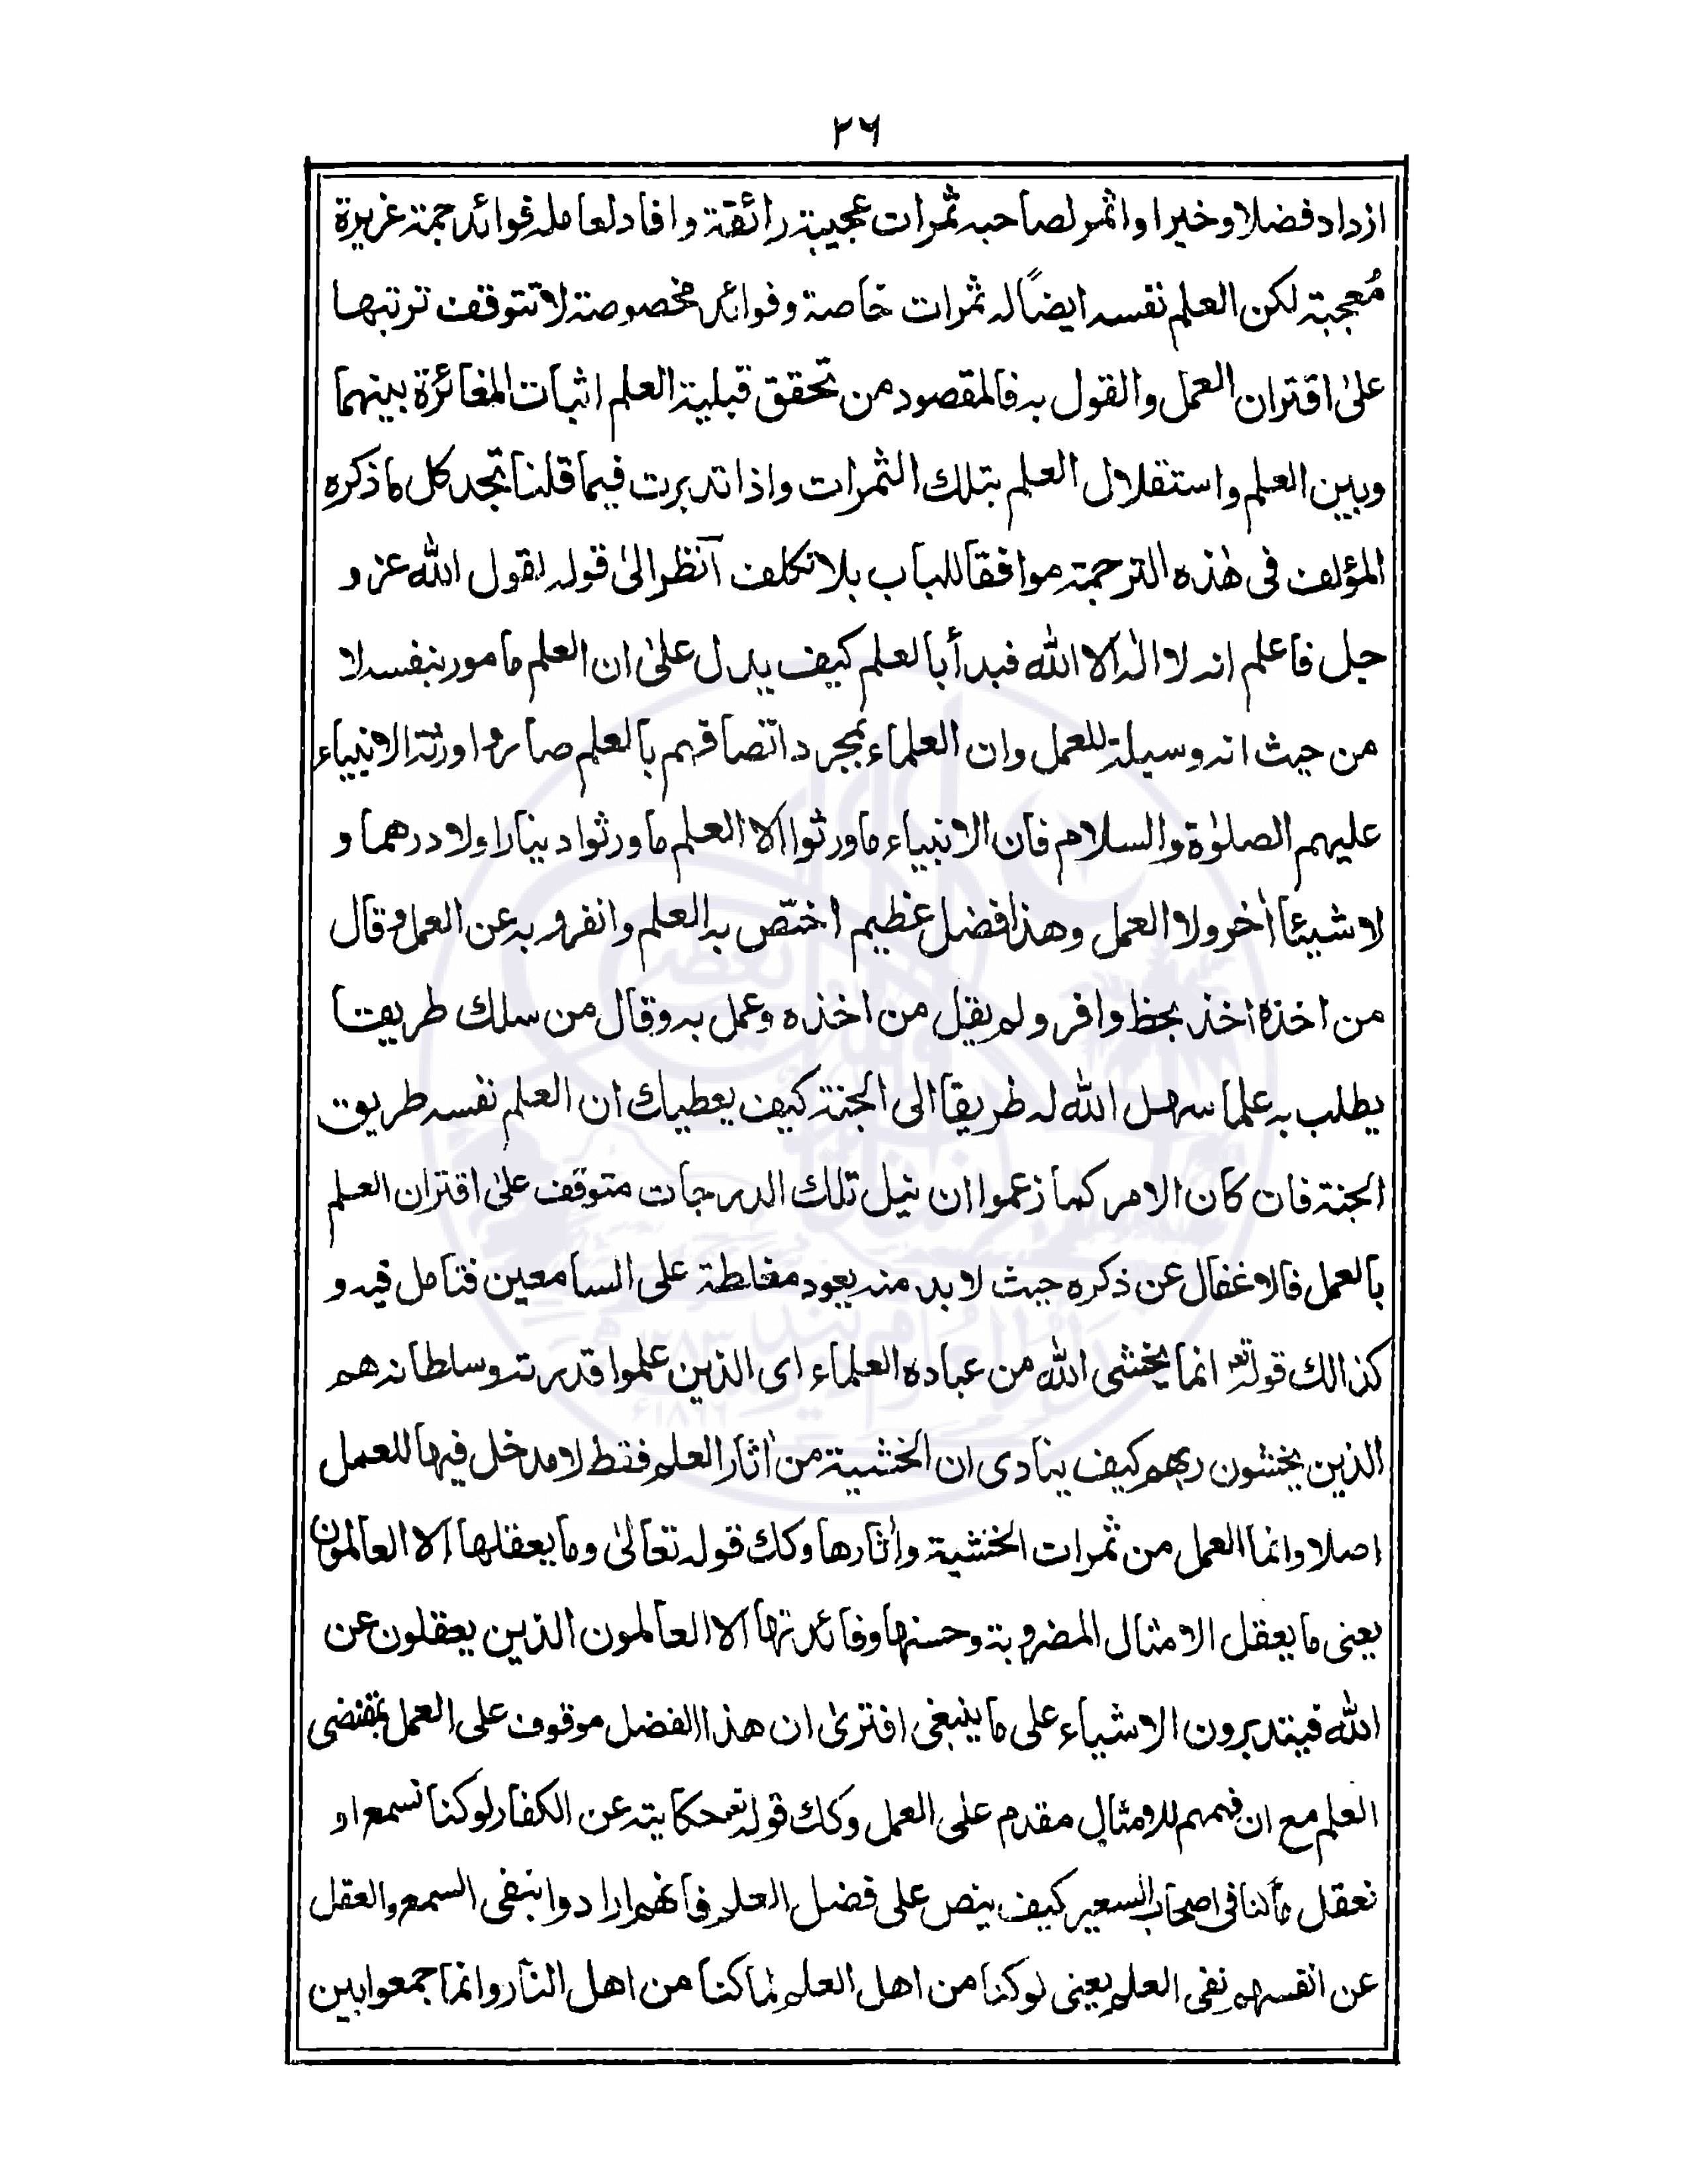 ۲۶
ازداد فضلا وخيرا واثمر لصاحبه ثمرات عجيبة رائقة وافاد لعامله فوائد جمة غزيرة
مُعجبة لكن العلم نفسه ايضًا له ثمرات خاصة وفوائد مخصوصة لا تتوقف ترتبها
علىٰ اقتران العمل والقول به فالمقصود من تحقق قبلية العلم اثبات المغائرة بينهما
وبين العلم واستقلال العلم بتلك الثمرات واذا تدبرت فيما قلنا تجد كل ما ذكره
المؤلف فى هٰذه الترجمة موافقا للباب بلا تكلف آنظر الىٰ قوله لقول الله عز و
جل فاعلم انه لا الٰه الا الله فبدأ بالعلم كيف يدل علىٰ ان العلم مامور بنفسه لا
من حيث انه وسيلة للعمل وان العلماء بمجرد اتصافهم بالعلم صاروا ورثة الانبياء
عليهم الصلوٰة والسلام فان الانبياء ما ورثوا الا العلم ما ورثوا دينارا ولا درهما و
لا شيئا اٰخر ولا العمل وهذا فضل عظيم اختص به العلم وانفرد به عن العمل وقال
من اخذه اخذ بحظ وافر ولم يقل من اخذه وعمل به وقال من سلك طريقا
يطلب به علما سهل الله له طريقا الى الجنة كيف يعطيك ان العلم نفسه طريق
الجنة فان كان الامر كما زعموا ان نيل تلك الدرجات متوقف علىٰ اقتران العلم
بالعمل فالاغفال عن ذكره حيث لا بد منه يعود مغلطة على السامعين فتامل فيه و
كذالك قوله تعالى انما يخشى الله من عباده العلماء اى الذين علموا قدرته وسلطانه هم
الذين يخشون ربهم كيف ينادى ان الخشية من اٰثار العلم فقط لا مدخل فيها للعمل
اصلا وانما العمل من ثمرات الخشية واٰثارها وكك قوله تعالىٰ وما يعقلها الا العالمون
يعنى ما يعقل الامثال المضروبة وحسنها وفائدتها الا العالمون الذين يعقلون عن
الله فيتدبرون الاشياء على ما ينبغى افترىٰ ان هذا الفضل موقوف على العمل بمقتضى
العلم مع ان فهمهم للامثال مقدم على العمل وكك قوله تع حكايته عن الكفار لو كنا نسمع او
نعقل ما كنا فى اصحاب السعير كيف ينص على فضل العلم فانهم ارادوا بنفى السمع والعقل
عن انفسهم نفى العلم يعنى لو كنا من اهل العلم لما كنا من اهل النار وانما جمعوا بين